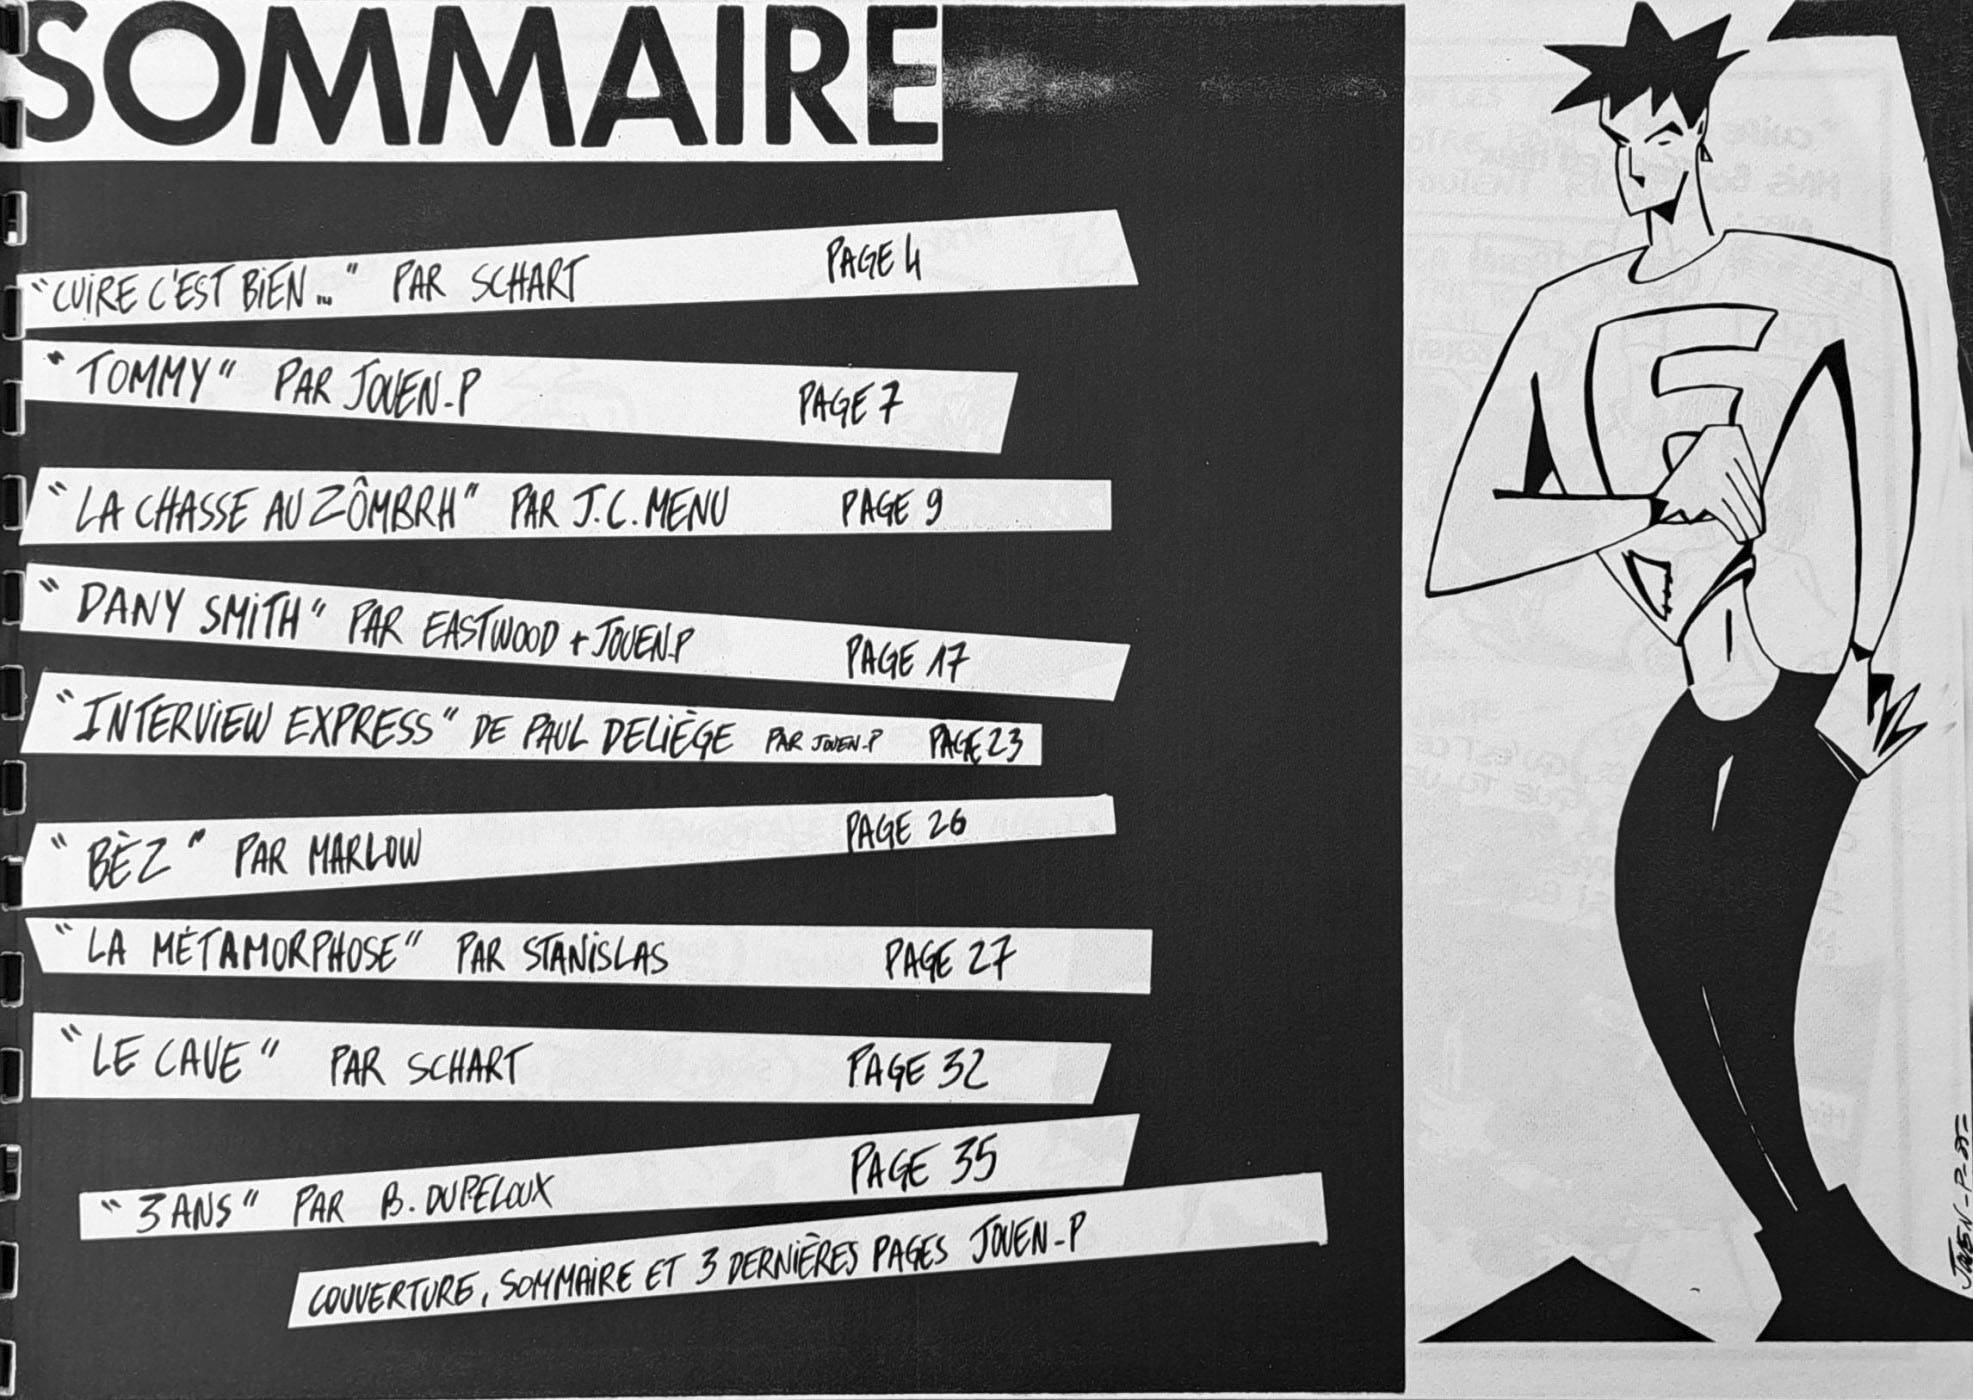 SOMMAIRE
"CUIRE C'EST BIEN..." PAR SCHART PAGE 4
"TOMMY" PAR JOUEN-P PAGE 7
"LA CHASSE AU ZÔMBRH" PAR J.C. MENU PAGE 9
"DANY SMITH" PAR EASTWOOD + JOUEN-P PAGE 17
"INTERVIEW EXPRESS" DE PAUL DELIÈGE PAR JOUEN-P PAGE 23
"BÈZ" PAR MARLOW PAGE 26
"LA MÉTAMORPHOSE" PAR STANISLAS PAGE 27
"LE CAVE" PAR SCHART PAGE 32
"3 ANS" PAR B. DUPELOUX PAGE 35
COUVERTURE, SOMMAIRE ET 3 DERNIÈRES PAGES JOUEN-P
F
JOUEN-P-